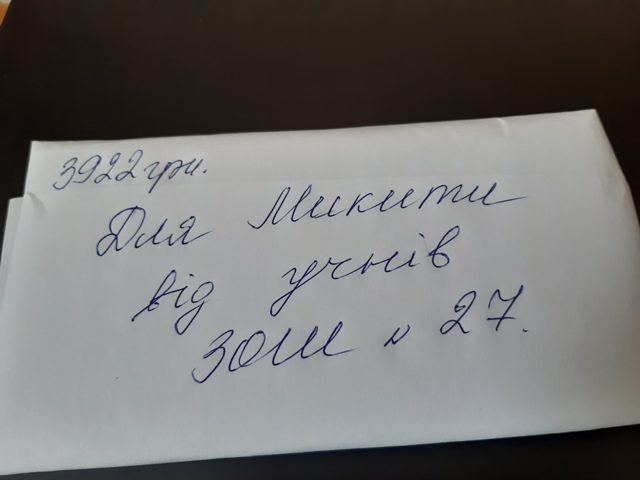 3922 грн.
Для Микити
від учнів
ЗОШ № 27.